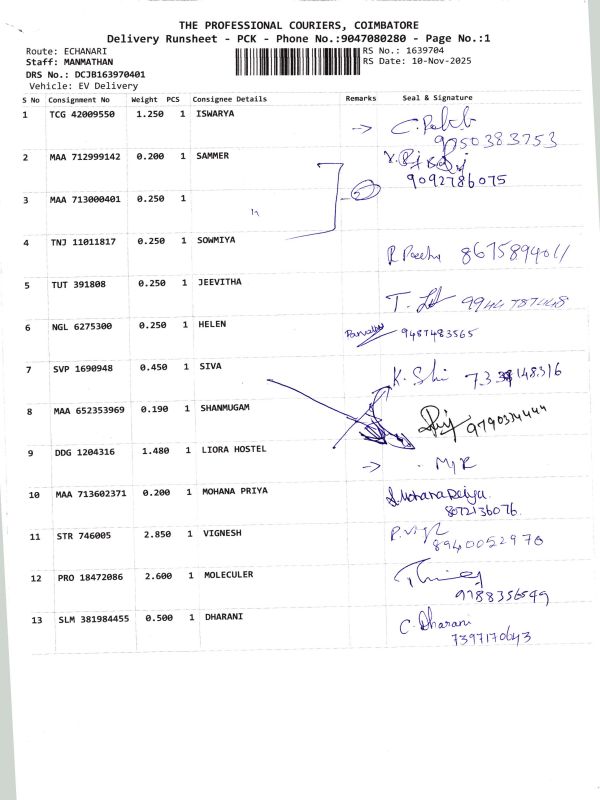 THE PROFESSIONAL COURIERS, COIMBATORE
Delivery Runsheet - PCK - Phone No.:9047080280 - Page No.:1
Route: ECHANARI RS No.: 1639704
Staff: MANMATHAN RS Date: 10-Nov-2025
DRS No.: DCJB163970401
Vehicle: EV Delivery
S No Consignment No Weight PCS Consignee Details Remarks Seal & Signature
1 TCG 42009550 1.250 1 ISWARYA
9750383753
2 MAA 712999142 0.200 1 SAMMER
9092786075
3 MAA 713000401 0.250 1
4 TNJ 11011817 0.250 1 SOWMIYA
8675894011
5 TUT 391808 0.250 1 JEEVITHA
T.
6 NGL 6275300 0.250 1 HELEN
9487483565
7 SVP 1690948 0.450 1 SIVA
K.
8 MAA 652353969 0.190 1 SHANMUGAM
9 DDG 1204316 1.480 1 LIORA HOSTEL
10 MAA 713602371 0.200 1 MOHANA PRIYA
8072136076
11 STR 746005 2.850 1 VIGNESH
8940052970
12 PRO 18472086 2.600 1 MOLECULER
9788356549
13 SLM 381984455 0.500 1 DHARANI
C. Dharani
7397170643